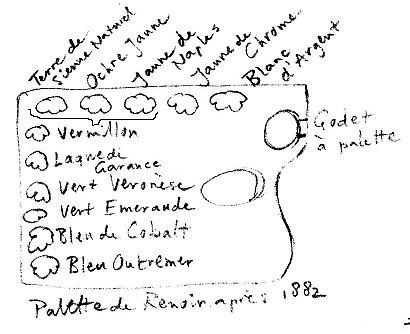 Terre de
Sienne Naturel
Ochre Jaune
Jaune de
Naples
Jaune de
Chrome
Blanc
d'Argent
Godet
à palette
Vermillon
Laque de
Garance
Vert Veronèse
Vert Emeraude
Bleu de Cobalt
Bleu Outremer
Palette de Renoir après 1882